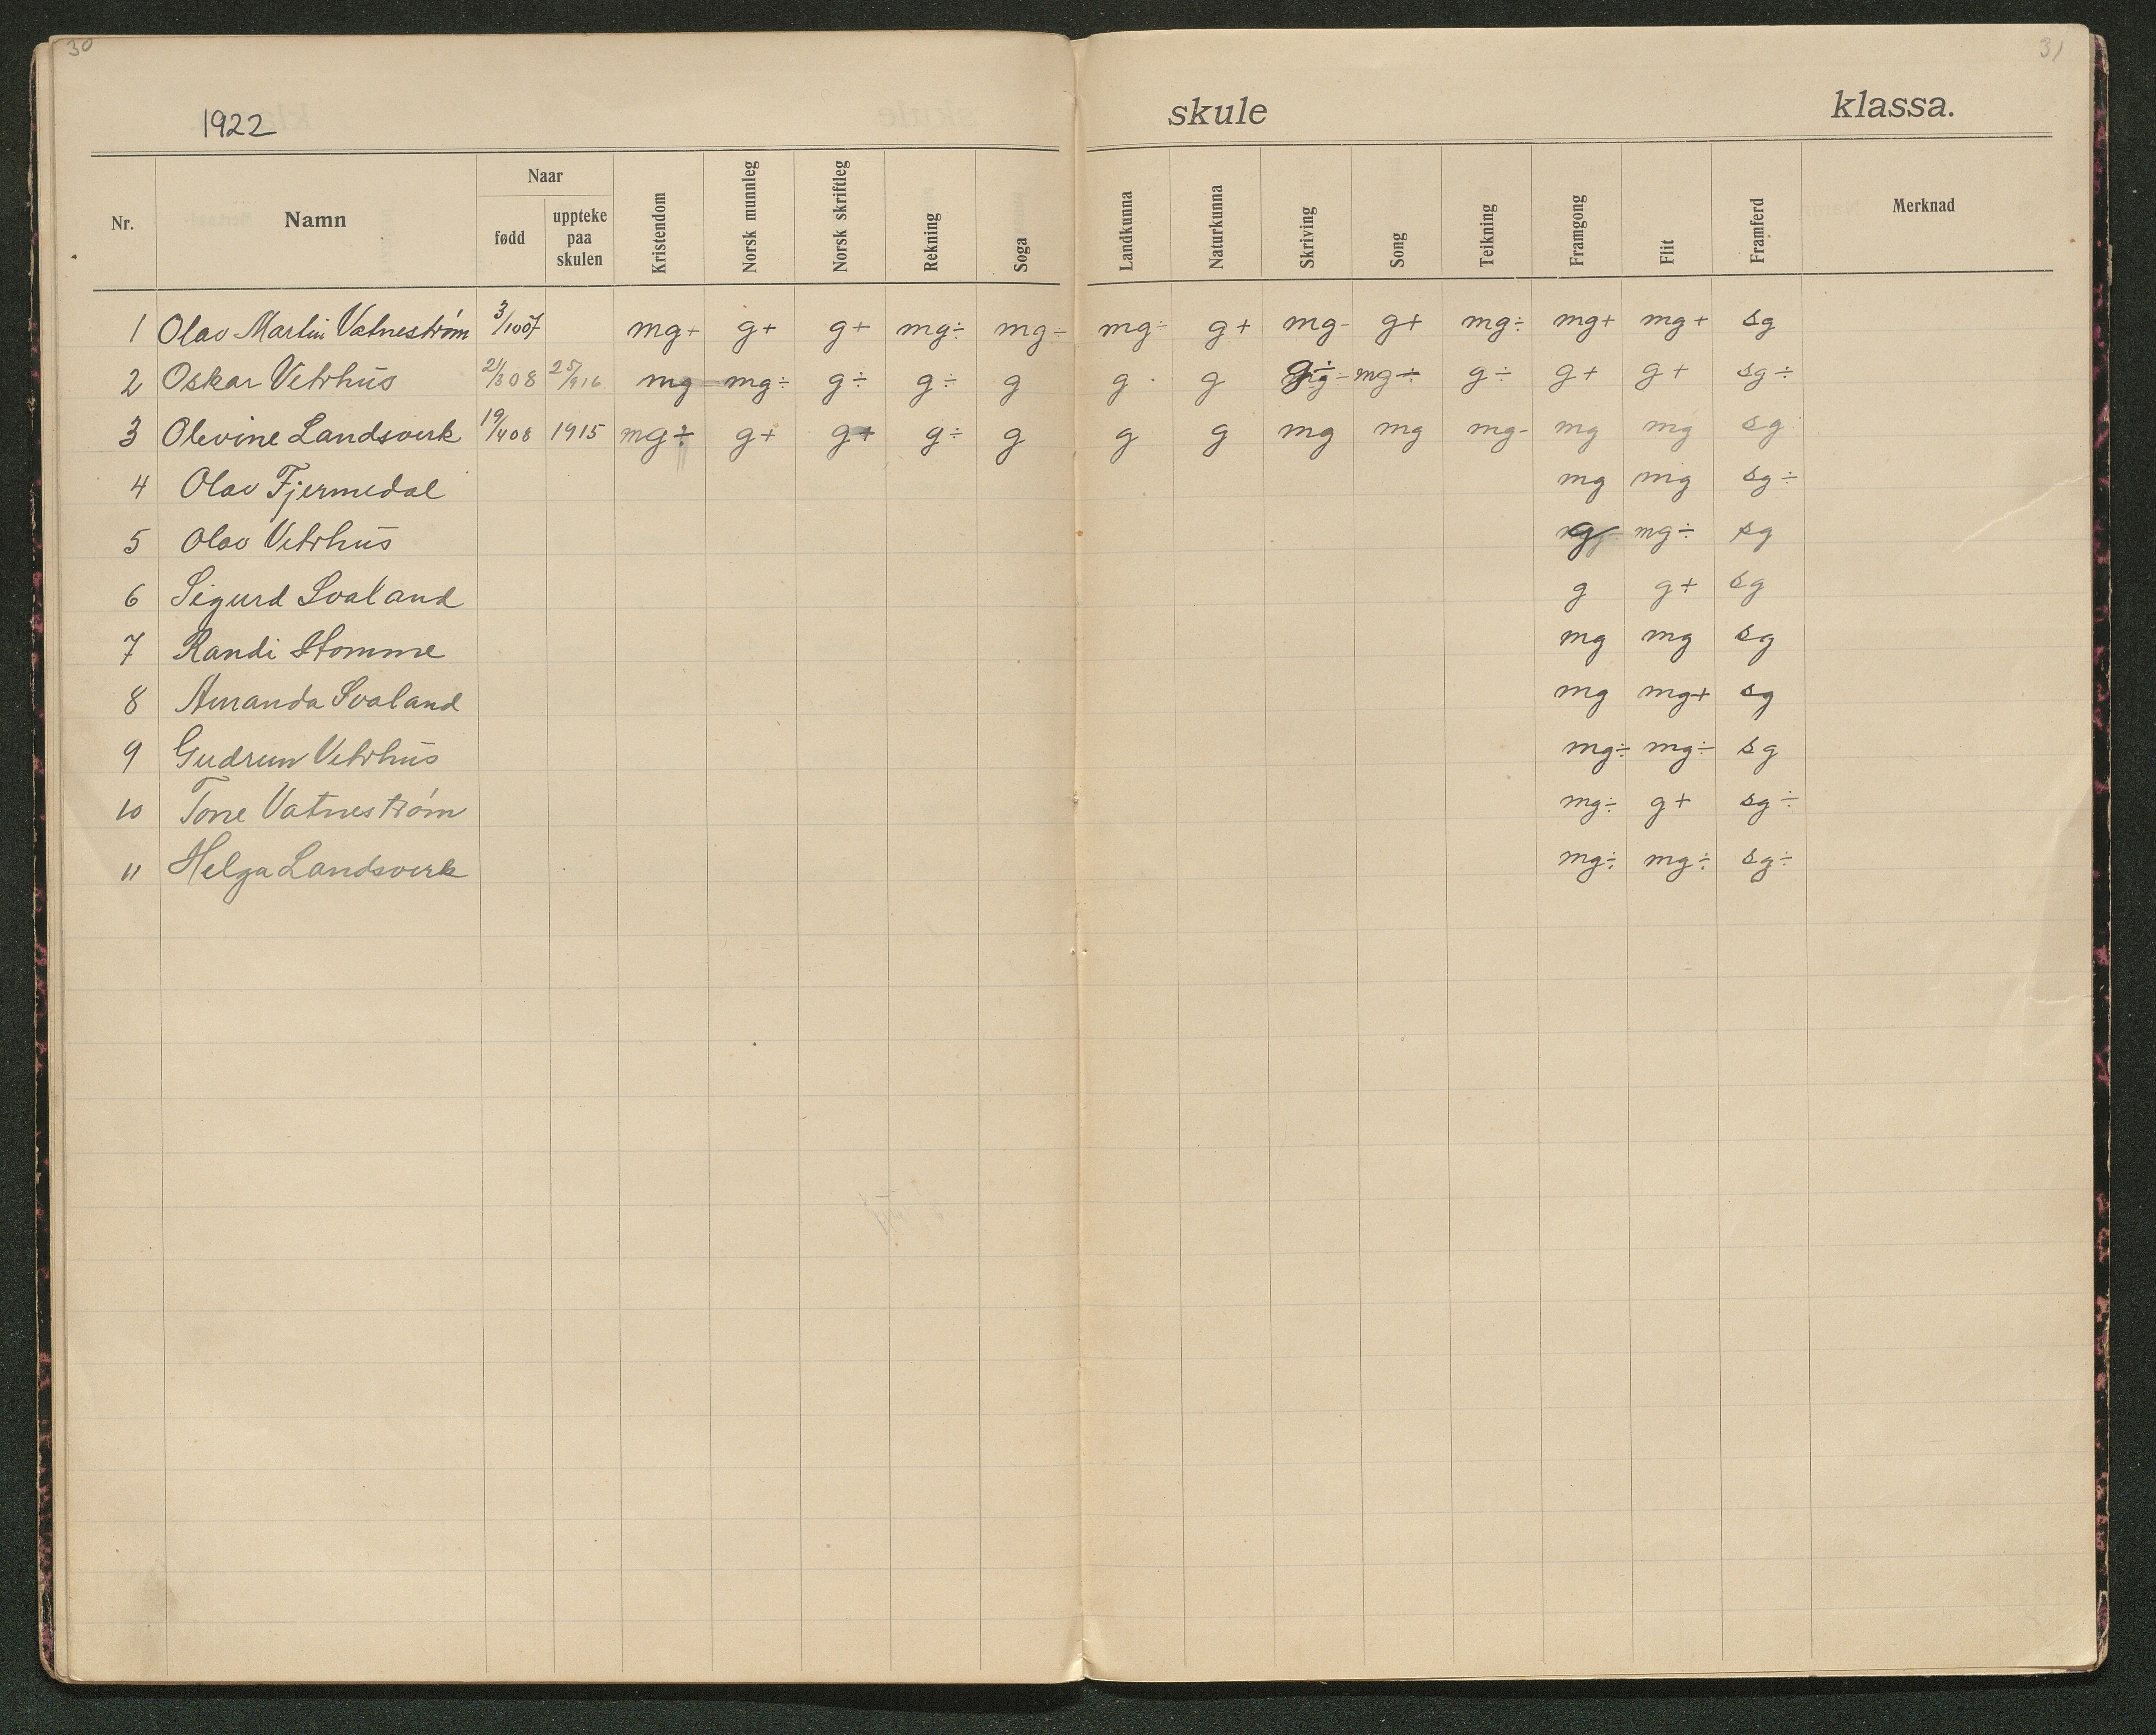 30
31
1922
skule
klassa.
Nr. Namn Naar Kristendom Norsk munnleg Norsk skriftleg Rekning Soga Landkunna Naturkunna Skriving Song Teikning Framgong Flit Framferd Merknad
fødd uppteke paa skulen
1 Olav Martin Vatnestrøm 3/10 07 mg+ g+ g+ mg÷ mg÷ mg÷ g+ mg- g+ mg÷ mg+ mg+ sg
2 Oskar Vetrhus 21/3 08 25/9 16 mg mg÷ g÷ g÷ g g g g÷ mg÷ g÷ g+ g+ sg÷
3 Olevine Landsverk 19/4 08 1915 mg÷ g+ g+ g÷ g g g mg mg mg- mg mg sg
4 Olav Fjermedal mg mg sg÷
5 Olav Vetrhus mg÷ sg
6 Sigurd Svaland g g+ sg
7 Randi Homme mg mg sg
8 Amanda Svaland mg mg+ sg
9 Gudrun Vetrhus mg÷ mg÷ sg
10 Tone Vatnestrøm mg÷ g+ sg÷
11 Helga Landsverk mg÷ mg÷ sg÷